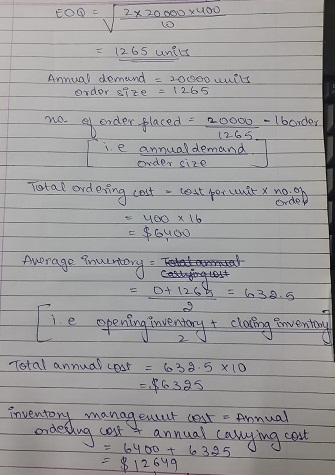 EOQ = √ 2 x 20000 x 400
10
= 1265 units
Annual demand = 20,000 units
order size = 1265
no. of order placed = 20000 - 16 order
1265
[i.e annual demand
order size]
Total ordering cost = cost per unit x no. of order
= 400 x 16
= $6400
Average inventory = Total annual
Carrying cost
= 0 + 1265 = 632.5
2
[i.e opening inventory + closing inventory
2
Total annual cost = 632.5 x10
= $6325
inventory management cost = Annual
ordering cost + annual carrying cost
= 6400 + 6325
= $12649